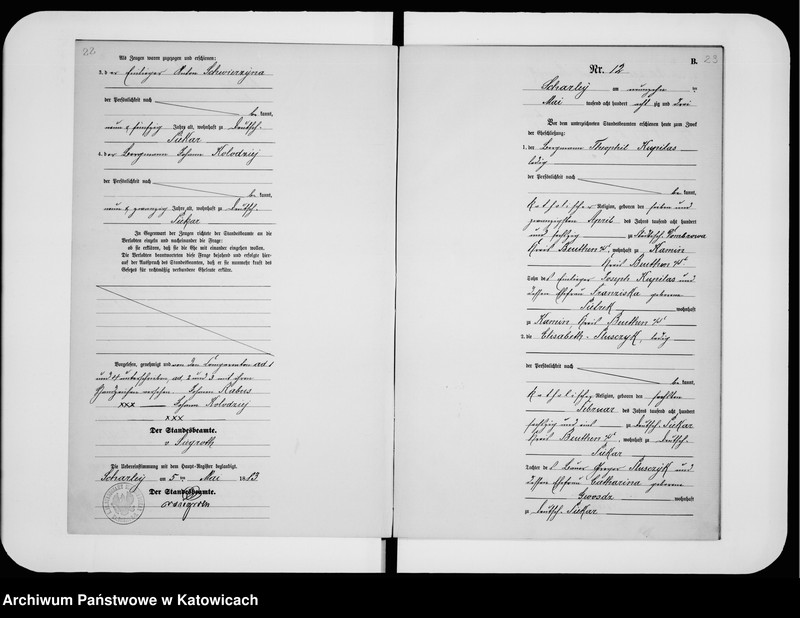 22
Als Zeugen waren zugezogen und erschienen:
3. der Einlieger Anton Schwierzyna
der Persönlichkeit nach
be kannt,
neun & fünfzig Jahre alt, wohnhaft zu Deutsch-
Piekar
4. der Bergmann Johann Kolodziej
der Persönlichkeit nach
be kannt,
neun & zwanzig Jahre alt, wohnhaft zu Deutsch-
Piekar
In Gegenwart der Zeugen richtete der Standesbeamte an die
Verlobten einzeln und nacheinander die Frage:
ob sie erklären, daß sie die Ehe mit einander eingehen wollen.
Die Verlobten beantworteten diese Frage bejahend und erfolgte hier-
auf der Ausspruch des Standesbeamten, daß er sie nunmehr kraft des
Gesetzes für rechtmäßig verbundene Eheleute erkläre.
Vorgelesen, genehmigt und von den Comparenten ad. 1
und 4 unterschrieben, ad. 2 und 3 mit ihren
Handzeichen versehen Johann
xxx Johann Kolodziej
xxx
Der Standesbeamte.
Die Uebereinstimmung mit dem Haupt-Register beglaubigt.
Scharley am 5 ten Mai 1883.
Der Standesbeamte.
B. 23
Nr. 12
Scharley am neunzehn ten
Mai tausend acht hundert acht zig und drei
Vor dem unterzeichneten Standesbeamten erschienen heute zum Zweck
der Eheschließung:
1. der Bergmann Theophil Kupilas
ledig
der Persönlichkeit nach
be kannt,
katholischer Religion, geboren den sieben und
zwanzigsten April des Jahres tausend acht hundert
und sechzig zu Deutsch Dombrowa
Kreis Beuthen, wohnhaft zu Kamin
Kreis Beuthen
Sohn des Einlieger Joseph Kupilas und
dessen Ehefrau Franziska geborene
wohnhaft
zu Kamin, Kreis Beuthen
2. die Elisabeth Slusczyk, ledig
der Persönlichkeit nach
be kannt,
katholischer Religion, geboren den sechsten
Februar des Jahres tausend acht hundert
sechzig und eins zu Deutsch-Piekar
Kreis Beuthen, wohnhaft zu Deutsch-
Piekar
Tochter des Bauer Slusczyk und
dessen Ehefrau Catharina geborene
Gwosdz wohnhaft
zu Deutsch-Piekar
Archiwum Państwowe w Katowicach